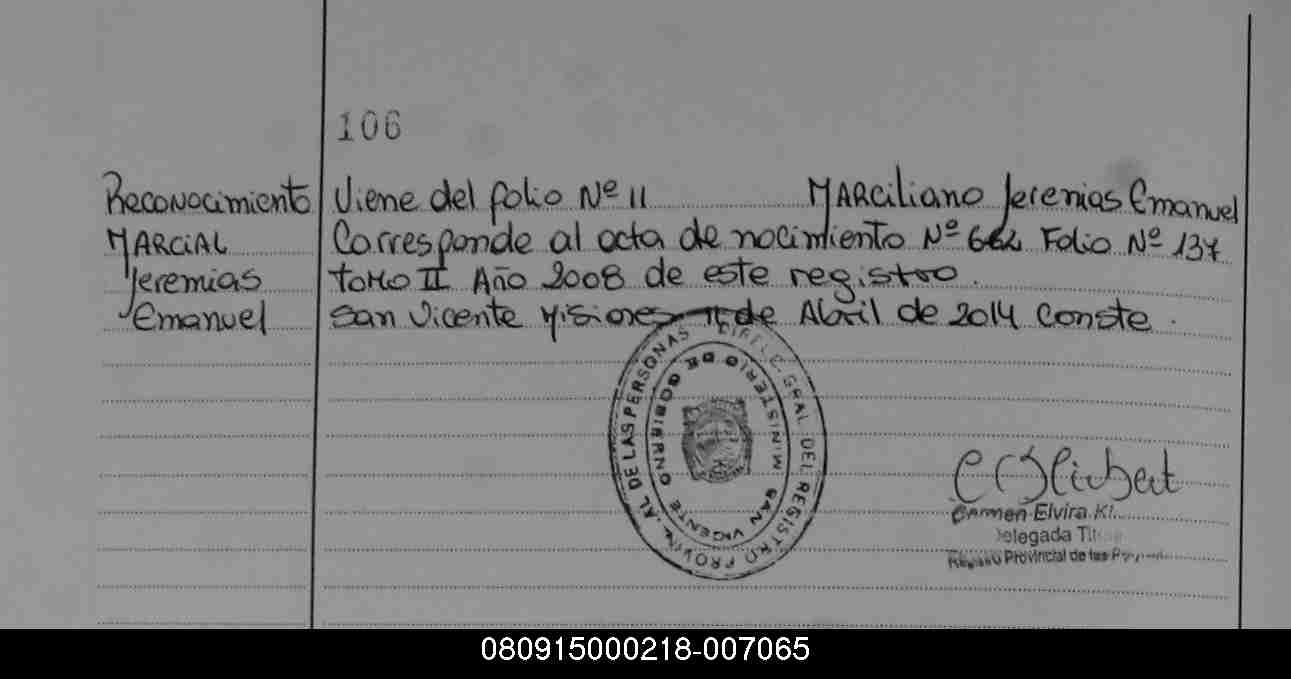 106
Reconocimiento
MARCiAL
Jeremias
Emanuel
Viene del folio Nº 11 MARCiliano Jeremias Emanuel
Corresponde al acta de nacimiento Nº Folio Nº 137
tomo II Año 2008 de este registro.
San Vicente Misiones de Abril de 2014 Conste.
DIREC. GRAL DEL REGISTRO PROVIN. AL DE LAS PERSONAS
MINISTERIO DE GOBIERNO
SAN VICENTE
Carmen Elvira
Delegada
Provincial de las
080915000218-007065